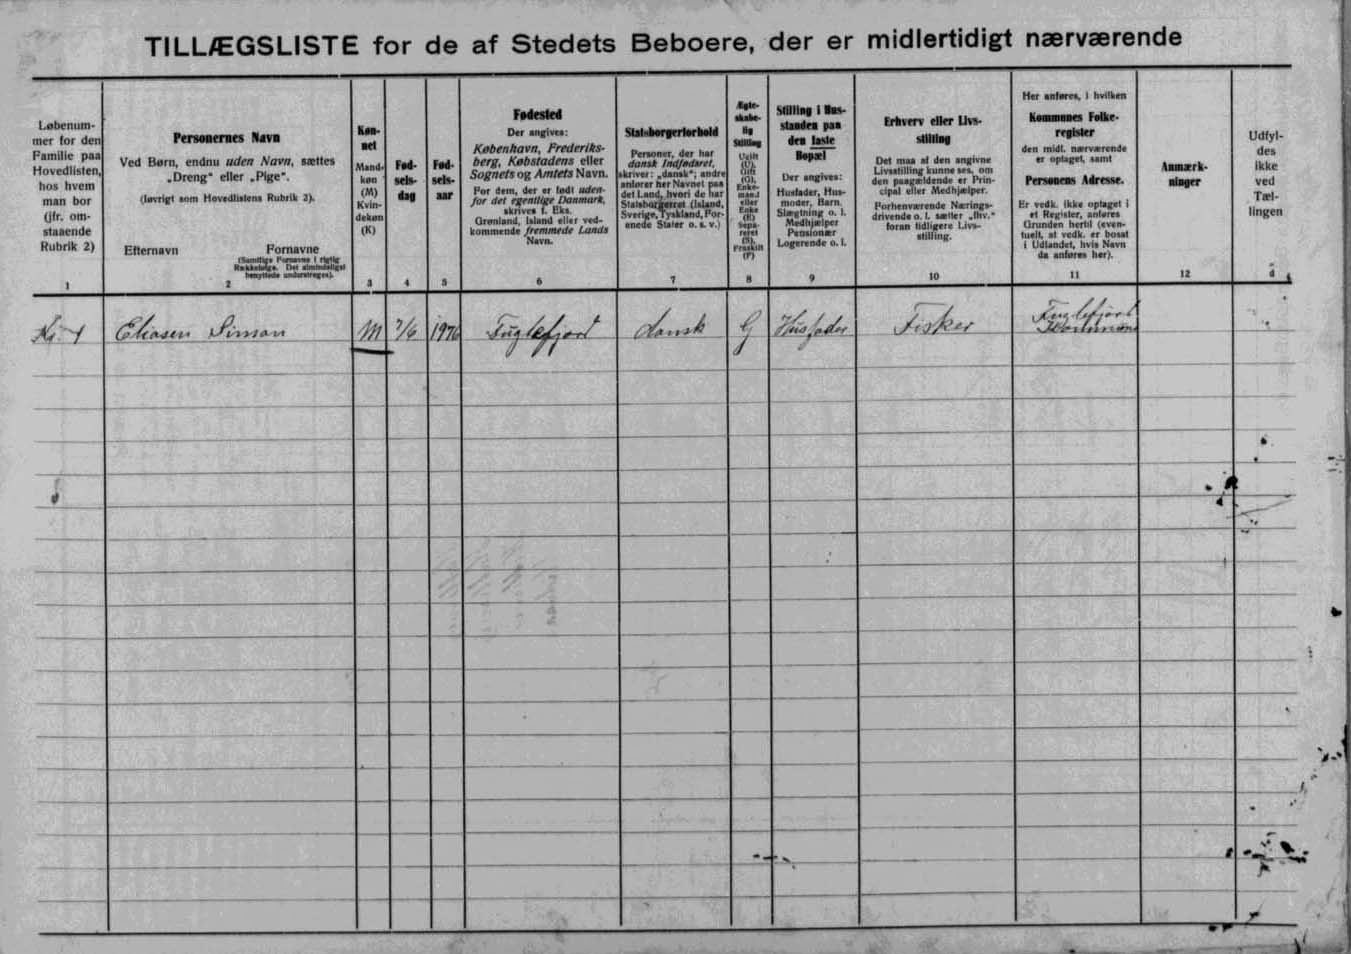 TILLÆGSLISTE for de af Stedets Beboere, der er midlertidigt nærværende
Løbenum-
mer for den
Familie paa
Hovedlisten,
hos hvem
man bor
(jfr. om-
staaende
Rubrik 2)
1
Personernes Navn
Ved Børn, endnu uden Navn, sættes
„Dreng" eller „Pige".
(Iøvrigt som Hovedlistens Rubrik 2).
Efternavn Fornavne
(Samtlige Fornavne i rigtig
Rækkefølge. Det almindeligst
benyttede understreges).
2
Køn-
net
Mand-
køn
(M)
Kvin-
dekøn
(K)
3
Fød-
sels-
dag
4
Fød-
sels-
aar
5
Fødested
Der angives:
København, Frederiks-
berg, Købstadens eller
Sognets og Amtets Navn.
For dem, der er født uden-
for det egentlige Danmark,
skrives f. Eks.
Grønland, Island eller ved-
kommende fremmede Lands
Navn.
6
Statsborgerforhold
Personer, der har
dansk Indfødsret,
skriver: „dansk"; andre
anfører her Navnet paa
det Land, hvori de har
Statsborgerret (Island,
Sverige, Tyskland, For-
enede Stater o. s. v.)
7
Ægte-
skabe-
lig
Stilling
Ugift
(U),
Gift
(G),
Enke-
mand
eller
Enke
(E)
Sepa-
reret
(S),
Fraskilt
(F)
8
Stilling i Hus-
standen paa
den faste
Bopæl
Der angives:
Husfader, Hus-
moder, Barn,
Slægtning o. l.
Medhjælper
Pensionær
Logerende o. l.
9
Erhverv eller Livs-
stilling
Det maa af den angivne
Livsstilling kunne ses, om
den paagældende er Prin-
cipal eller Medhjælper.
Forhenværende Nærings-
drivende o. l. sætter „fhv."
foran tidligere Livs-
stilling.
10
Her anføres, i hvilken
Kommunes Folke-
register
den midl. nærværende
er optaget, samt
Personens Adresse.
Er vedk. ikke optaget i
et Register, anføres
Grunden hertil (even-
tuelt, at vedk. er bosat
i Udlandet, hvis Navn
da anføres her).
11
Anmærk-
ninger
12
Udfyl-
des
ikke
ved
Tæl-
lingen
d
Eliasen Simon M 7/6 Fuglefjord dansk G Husfader Fisker Fuglefjord
Kommune